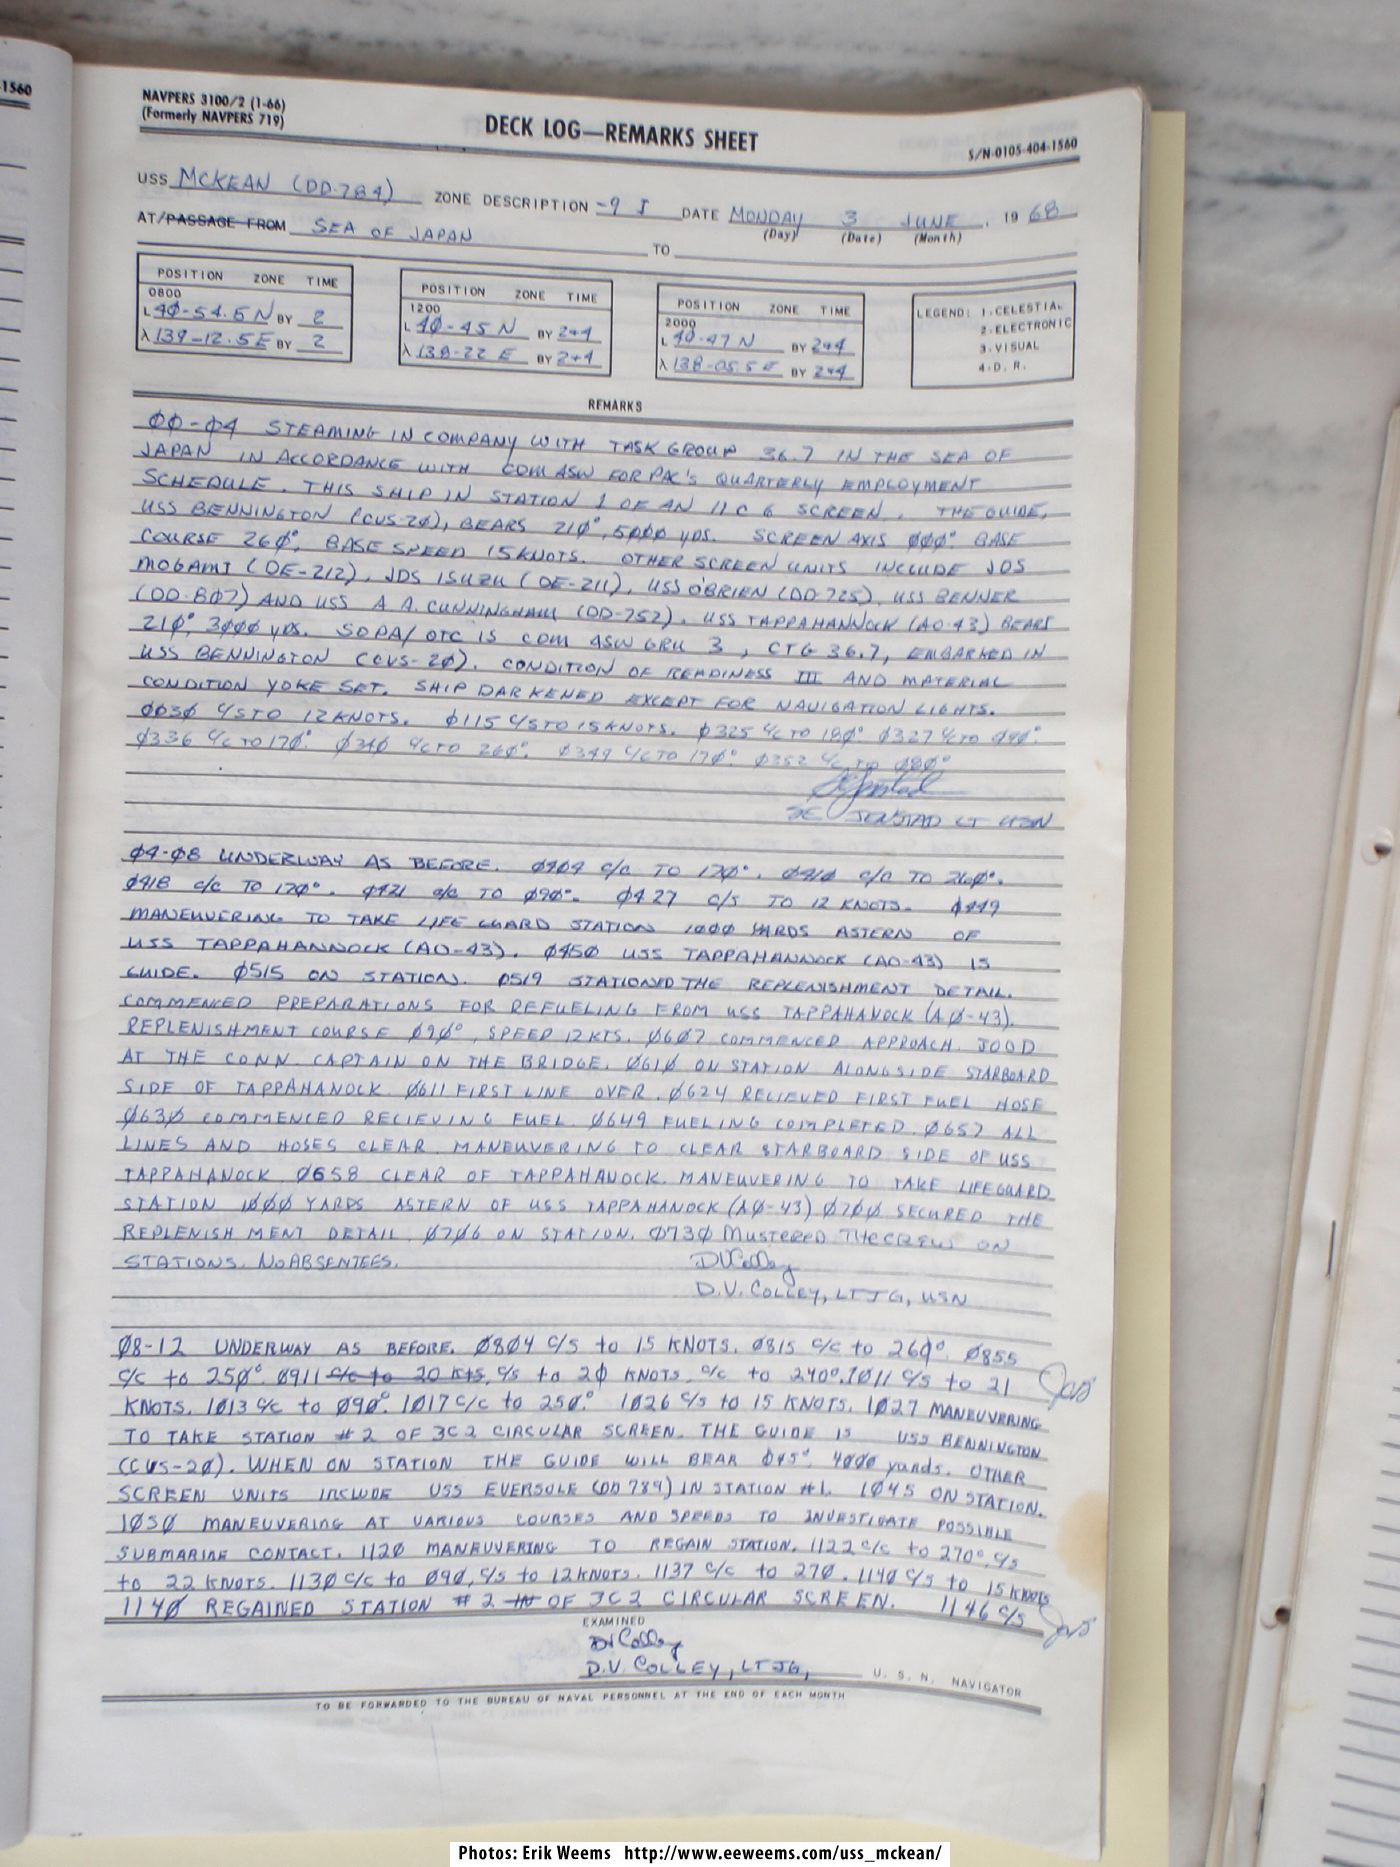 -1560
NAVPERS 3100/2 (1-66)
(Formerly NAVPERS 719)
DECK LOG—REMARKS SHEET
S/N-0105-404-1560
USS MCKEAN (DD-784) ZONE DESCRIPTION -9 I DATE MONDAY 3 JUNE, 19 68
(Day) (Date) (Month)
AT/PASSAGE FROM SEA OF JAPAN TO
POSITION ZONE TIME
0800
L 40-54.5 N BY 2
λ 139-12.5 E BY 2
POSITION ZONE TIME
1200
L 40-45 N BY 2+4
λ 138-22 E BY 2+4
POSITION ZONE TIME
2000
L 40-47 N BY 2+4
λ 138-05.5 E BY 2+4
LEGEND: 1-CELESTIAL
2-ELECTRONIC
3-VISUAL
4-D. R.
REMARKS
00-04 STEAMING IN COMPANY WITH TASK GROUP 36.7 IN THE SEA OF
JAPAN IN ACCORDANCE WITH COM ASW FOR PAC'S QUARTERLY EMPLOYMENT
SCHEDULE. THIS SHIP IN STATION 1 OF AN 11 C 6 SCREEN. THE GUIDE,
USS BENNINGTON (CVS-20), BEARS 210°, 5000 YDS. SCREEN AXIS 000°. BASE
COURSE 260°, BASE SPEED 15 KNOTS. OTHER SCREEN UNITS INCLUDE JDS
MOGAMI (DE-212), JDS ISUZU (DE-211), USS O'BRIEN (DD-725), USS BENNER
(DD-807) AND USS A. A. CUNNINGHAM (DD-752). USS TAPPAHANNOCK (AO-43) BEARS
210°, 3000 YDS. SOPA/OTC IS COM ASW GRU 3, CTG 36.7, EMBARKED IN
USS BENNINGTON (CVS-20). CONDITION OF READINESS III AND MATERIAL
CONDITION YOKE SET. SHIP DARKENED EXCEPT FOR NAVIGATION LIGHTS.
0030 C/S TO 12 KNOTS. 0115 C/S TO 15 KNOTS. 0325 C/C TO 180°. 0327 C/C TO 090°.
0336 C/C TO 170°. 0340 C/C TO 260°. 0349 C/C TO 170°. 0352 C/C TO 080°
JENSTAD LT USN
04-08 UNDERWAY AS BEFORE. 0404 C/C TO 170°. 0410 C/C TO 260°.
0418 C/C TO 170°. 0421 C/C TO 090°. 0427 C/S TO 12 KNOTS. 0449
MANEUVERING TO TAKE LIFE GUARD STATION 1000 YARDS ASTERN OF
USS TAPPAHANNOCK (AO-43). 0450 USS TAPPAHANNOCK (AO-43) IS
GUIDE. 0515 ON STATION. 0519 STATIONED THE REPLENISHMENT DETAIL.
COMMENCED PREPARATIONS FOR REFUELING FROM USS TAPPAHANOCK (AO-43).
REPLENISHMENT COURSE 090°, SPEED 12 KTS. 0607 COMMENCED APPROACH. JOOD
AT THE CONN. CAPTAIN ON THE BRIDGE. 0610 ON STATION ALONGSIDE STARBOARD
SIDE OF TAPPAHANOCK. 0611 FIRST LINE OVER. 0624 RELIEVED FIRST FUEL HOSE
0630 COMMENCED RELIEVING FUEL. 0649 FUELING COMPLETED. 0657 ALL
LINES AND HOSES CLEAR. MANEUVERING TO CLEAR STARBOARD SIDE OF USS
TAPPAHANOCK. 0658 CLEAR OF TAPPAHANOCK. MANEUVERING TO TAKE LIFEGUARD
STATION 1000 YARDS ASTERN OF USS TAPPAHANOCK (AO-43) 0700 SECURED THE
REPLENISHMENT DETAIL. 0706 ON STATION. 0730 MUSTERED THE CREW ON
STATIONS. NO ABSENTEES. DVColley
D.V. COLLEY, LTJG, USN
08-12 UNDERWAY AS BEFORE. 0804 C/S to 15 KNOTS. 0815 C/C to 260°. 0855
C/C to 250°. 0911 C/C to 20 KTS, C/S to 20 KNOTS, C/C to 240°. 1011 C/S to 21
KNOTS. 1013 C/C to 090°. 1017 C/C to 250°. 1026 C/S to 15 KNOTS. 1027 MANEUVERING
TO TAKE STATION #2 OF 3C2 CIRCULAR SCREEN. THE GUIDE IS USS BENNINGTON
(CVS-20). WHEN ON STATION THE GUIDE WILL BEAR 045°, 4000 yards. OTHER
SCREEN UNITS INCLUDE USS EVERSOLE (DD 789) IN STATION #1. 1045 ON STATION.
1050 MANEUVERING AT VARIOUS COURSES AND SPEEDS TO INVESTIGATE POSSIBLE
SUBMARINE CONTACT. 1120 MANEUVERING TO REGAIN STATION. 1122 C/C to 270°, C/S
to 22 KNOTS. 1130 C/C to 090, C/S to 12 KNOTS. 1137 C/C to 270. 1140 C/S to 15 KNOTS
1140 REGAINED STATION #2 IN OF 3C2 CIRCULAR SCREEN. 1146 C/S
EXAMINED
DVColley
D.V. COLLEY, LTJG, U. S. N. NAVIGATOR
TO BE FORWARDED TO THE BUREAU OF NAVAL PERSONNEL AT THE END OF EACH MONTH
Photos: Erik Weems http://www.eeweems.com/uss_mckean/